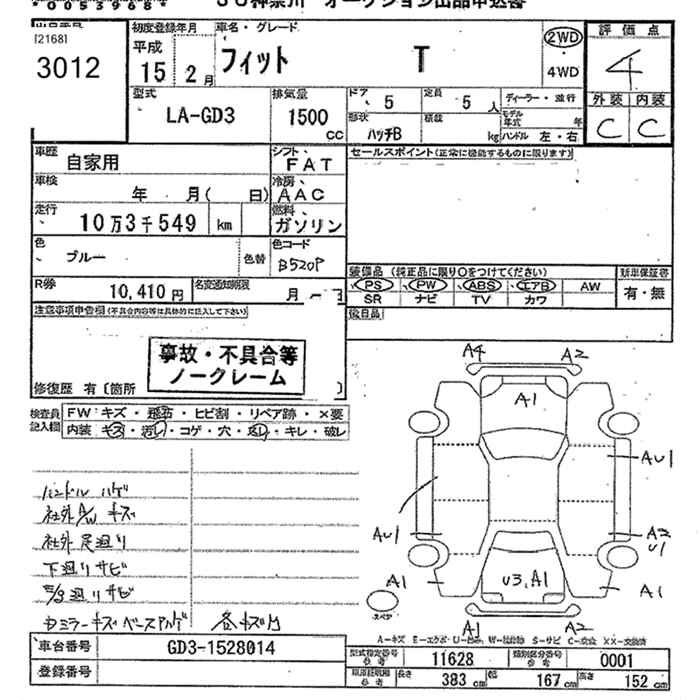 *00559684*
JU神奈川 オークション出品申込書
出品番号
[2168]
3012
初度登録年月
平成
15年 2月
車名・グレード
フィット T
2WD
・
4WD
評価点
4
外装 内装
C C
型式
LA-GD3
排気量
1500
CC
ドア
5
定員
5人
ディーラー・並行
形状
ハッチB
積載
kg
モデル年式 年
ハンドル 左・右
車歴
自家用
シフト
FAT
セールスポイント(正常に機能するものに限ります)
車検
年 月( 日)
冷房
AAC
走行
10万3千549 km
燃料
ガソリン
色
ブルー
色替
色コード
B520P
装備品 (純正品に限り○をつけてください)
新車保証書
PS PW ABS エアB AW
有・無
SR ナビ TV カワ
R券
10,410円
名変通知期限
月
後日品
注意事項申告欄(不具合内容等は具体的に記入して下さい)
事故・不具合等
ノークレーム
修復歴 有〔箇所
検査員
記入欄
FW:キズ・飛石・ヒビ割・リペア跡・×要
内装 キズ・汚レ・コゲ・穴・スレ・キレ・破レ
ハンドル ハゲ
社外A/W キズ
社外 足廻り
下廻りサビ
E/g廻りサビ
各キズ凹
A4
A2
A1
AU1
AU1
A2
U1
A1
U3,A1
A1
スペア
A1
A2
A-キズ E-エクボ U-凹み W-補修跡 S-サビ C-腐食 XX-交換済
車台番号
GD3-1528014
登録番号
型式指定番号
参考
11628
類別区分番号
参考
0001
車両証明書
参考
長さ
383 cm
幅
167 cm
高さ
152 cm